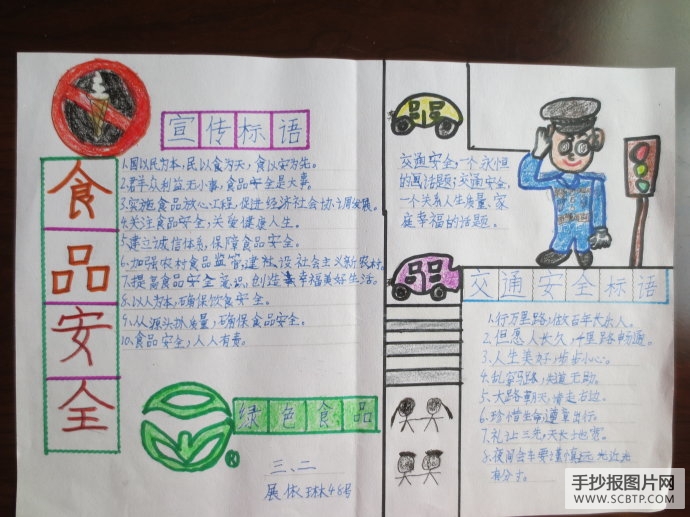 食品安全
宣传标语
1.国以民为本,民以食为天,食以安为先。
2.君羊众利益无小事,食品安全是大事。
3.实施食品放心工程,促进经济社会协调发展。
4.关注食品安全,关爱健康人生。
5.建立诚信体系,保障食品安全。
6.加强农村食品监管,建设社会主义新农村。
7.提高食品安全意识,创造幸福美好生活。
8.以人为本,确保饮食安全。
9.从源头抓质量,确保食品安全。
10.食品安全,人人有责。
绿色食品
R
三、二
展依琳48号
交通安全,一个永恒
的画话题;交通安全,
一个关系人生质量、家
庭幸福的话题。
交通安全标语
1.行万里路,做百年长乐人。
2.但愿人长久,千里路畅通。
3.人生美好,步步小心。
4.乱穿马路,失道无助。
5.大路朝天,请走右边。
6.珍惜生命,遵章出行。
7.礼让三先,天长地宽。
8.夜间会车要懂慎,远光近光
有分寸。
手抄报图片网
WWW.SCBTP.COM